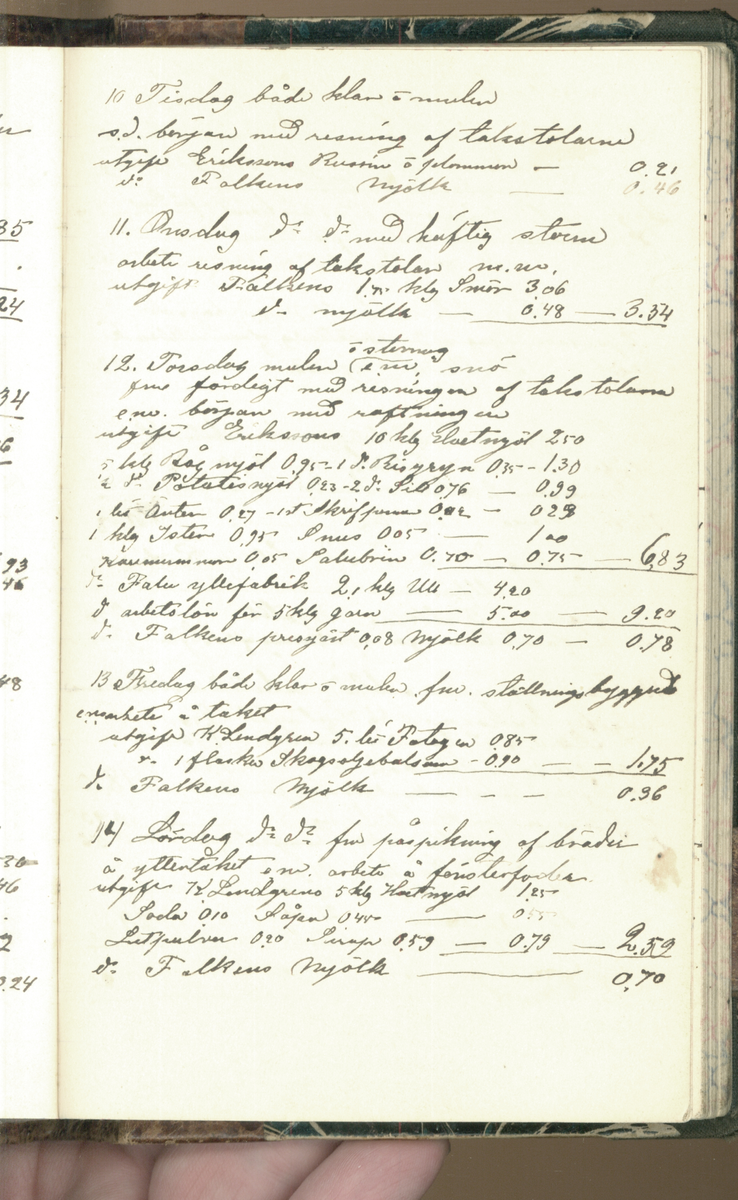 10 Tisdag både klar o mulen
s.d. början med resning af takstolarne
utgift Erikssons Russin o plommon — 0.21
do Falkens Mjölk — 0.46
11. Onsdag do do med häftig storm
arbete resning af takstolar m.m.
utgift Falkens 1.75 klg Smör 3.06
do mjölk — 0.48 — 3.54
o stormig
12. Torsdag mulen e.m. snö
fm färdigt med resningen af takstolarne
e.m. början med raftningen
utgift Erikssons 10 klg Hvetmjöl 2.50
5 klg Råg mjöl 0.95 - 1 do Risgryn 0.35 - 1.30
½ do Potatismjöl 0.23 - 2 do Sill 0.76 — 0.99
1 lit Ärter 0.27 - 1 st Skrifpenna 0.02 — 0.29
1 klg Ister 0.95 Snus 0.05 — 1.00
0.05 Salubrin 0.70 — 0.75 — 6.83
do Falu yllefabrik 2.1 klg Ull — 4.20
d arbetslön för 5 klg garn — 5.00 — 9.20
do Falkens pressjäst 0.08 Mjölk 0.70 — 0.78
13 Fredag både klar o mulen fm. ställningsbyggnad
em arbete å taket
utgift K Lendgren 5. lit Fotogen 0.85
1 flaska Skogsoljebalsam - 0.90 — 1.75
do Falkens Mjölk — — — 0.36
14 Lördag do do fm påspikning af bräder
å yttertaket em. arbete å fönsterfoder
utgift K Lendgrens 5 klg Hvetmjöl 1.25
Soda 0.10 Såpa 0.45 — 0.55
Lutpulver 0.20 Sirap 0.59 — 0.79 — 2.59
do Falkens Mjölk — 0.70